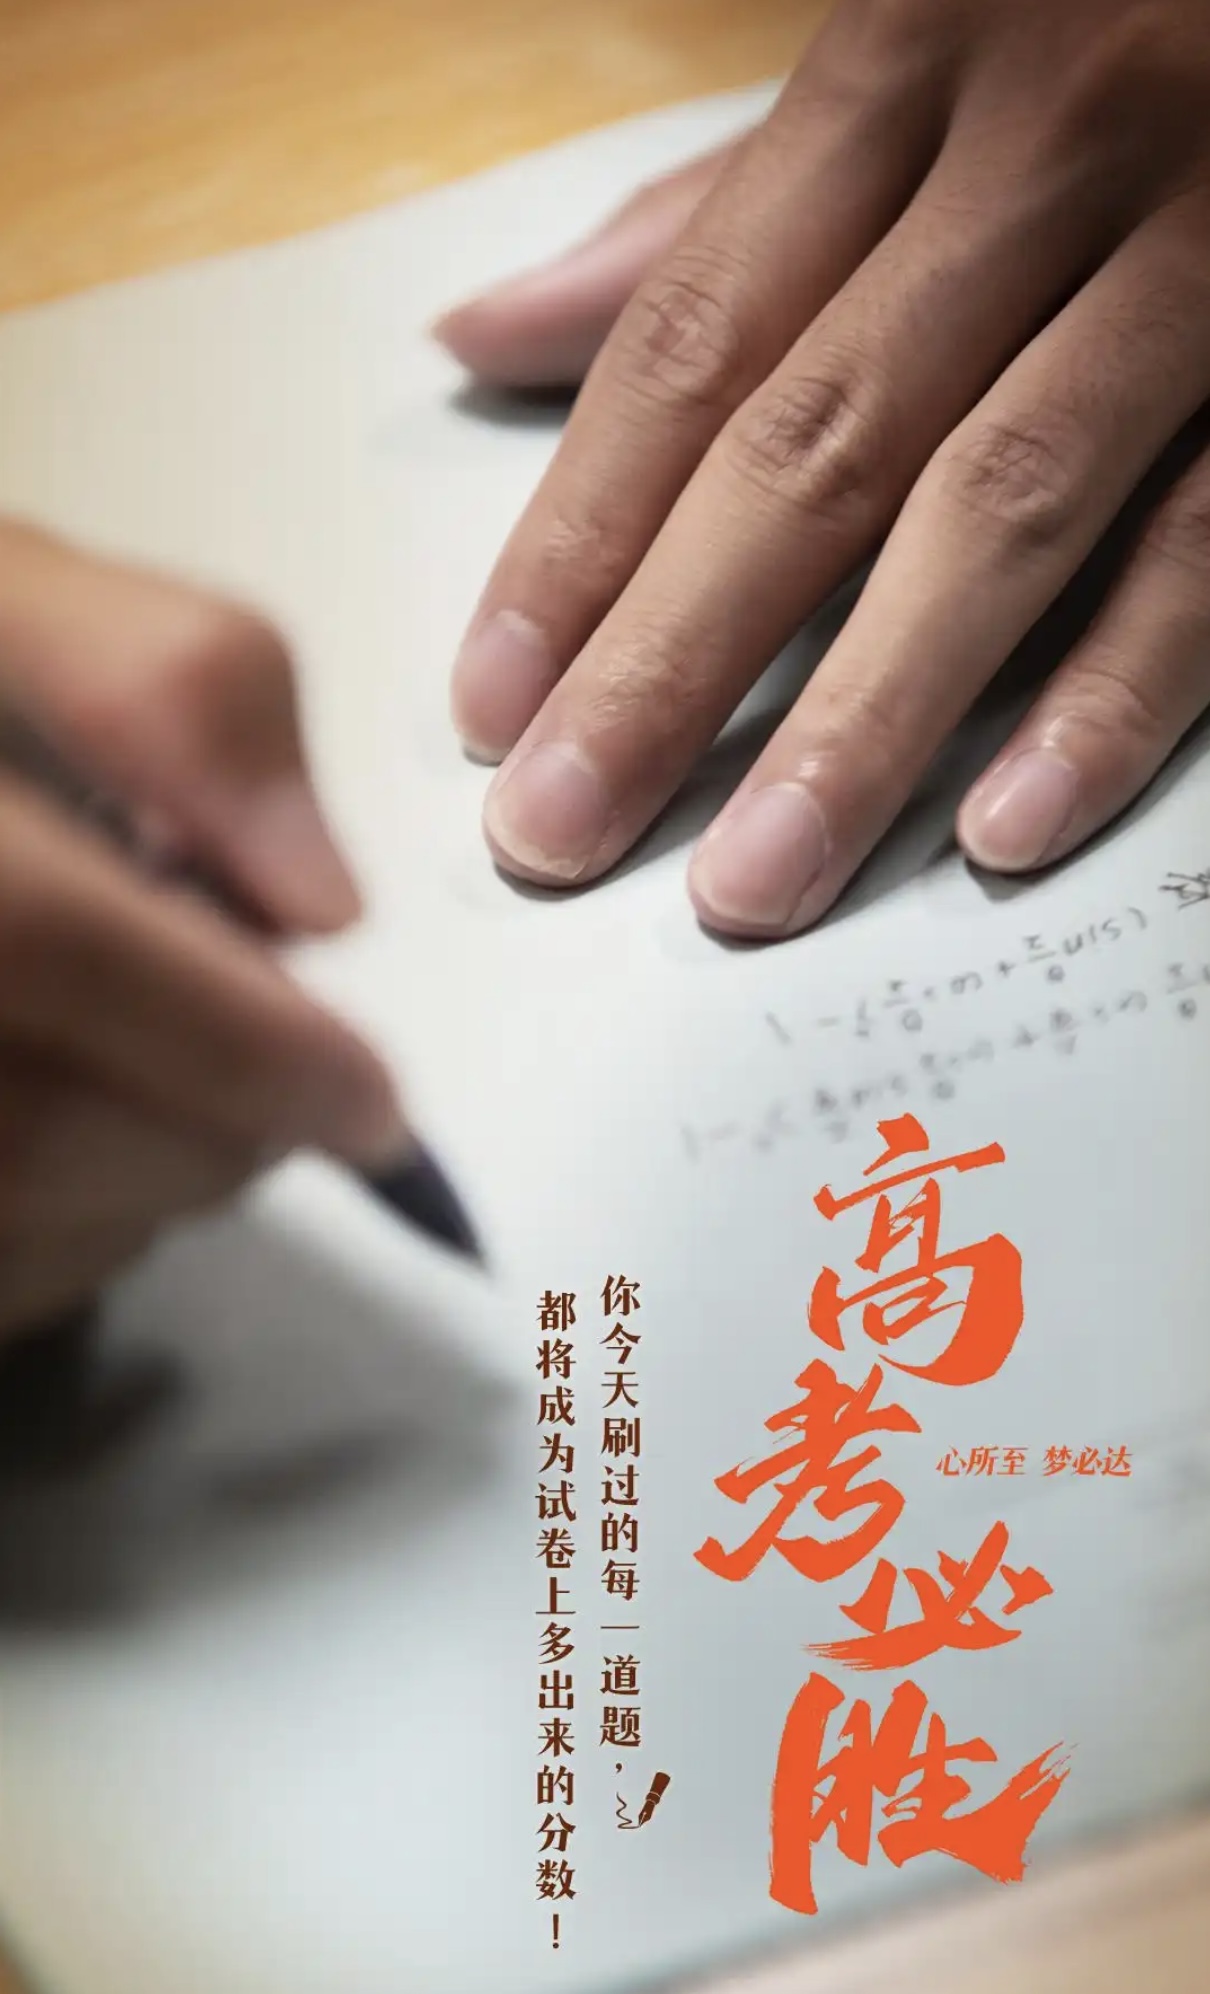 高考必胜
心所至 梦必达
你今天刷过的每一道题，
都将成为试卷上多出来的分数！